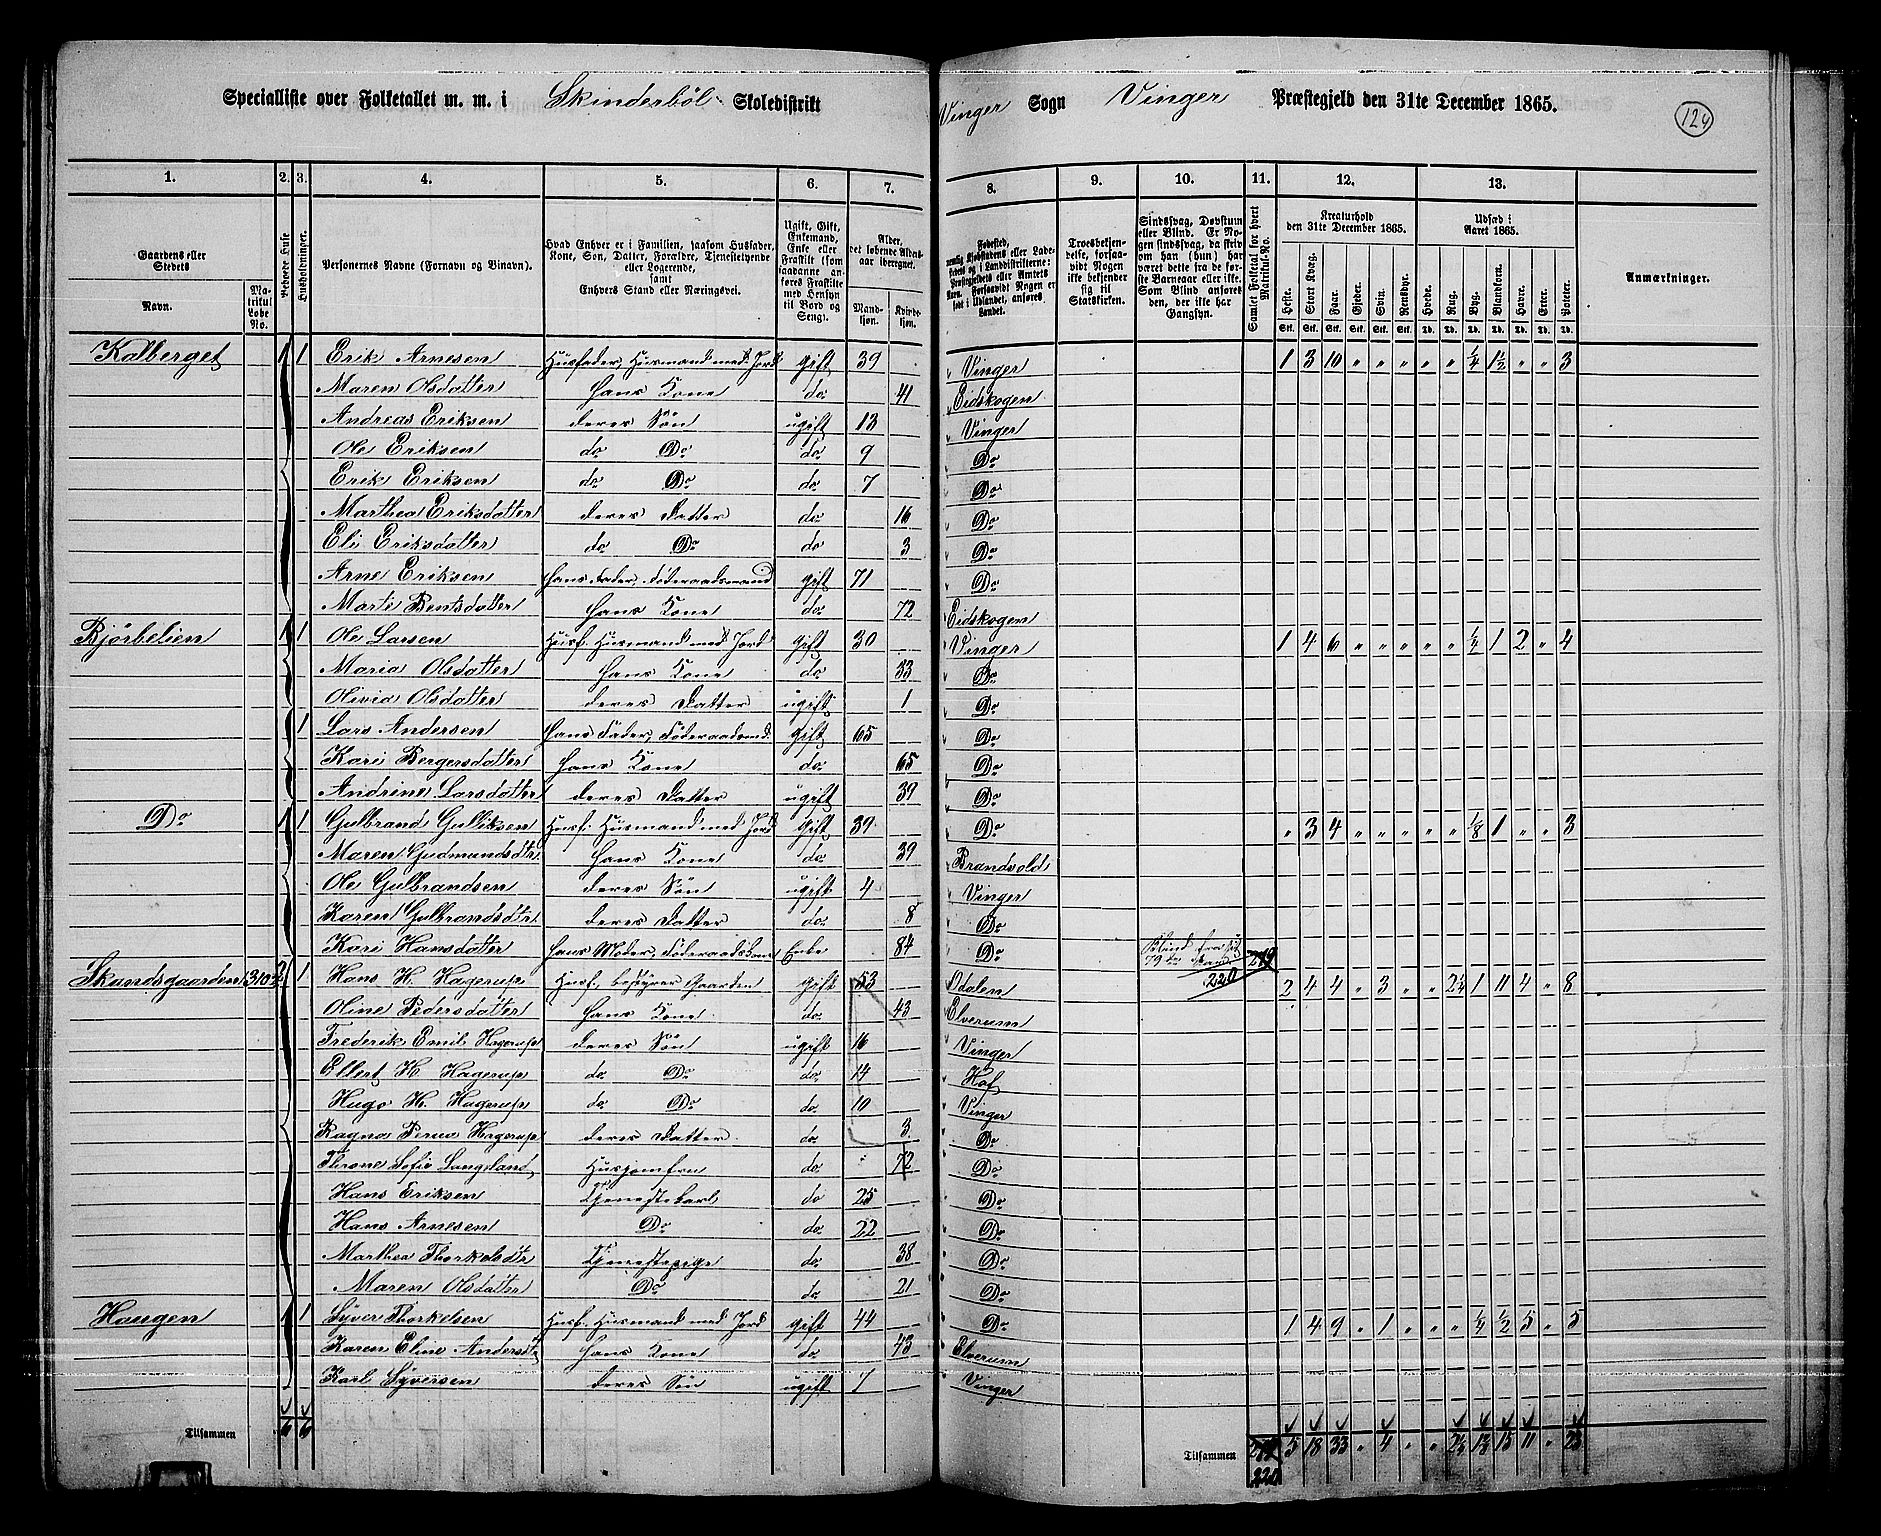 Specialliste over Folketallet m. m. i Skinderböl Skoledistrikt Vinger Sogn Vinger Præstegjeld den 31te December 1865. 124
1. 2. 3. 4. 5. 6. 7. 8. 9. 10. 11. 12. 13.
Gaardens eller Stedets
Navn.
Matrikul Løbe No.
Beboede Huse
Husholdninger.
Personernes Navne (Fornavn og Binavn).
Hvad Enhver er i Familien, saasom Husfader, Kone, Søn, Datter, Forældre, Tjenestetyende eller Logerende, samt Enhvers Stand eller Næringsvei.
Ugift, Gift, Enkemand, Enke eller Fraskilt (som saadanne anføres Fraskilte med Hensyn til Bord og Seng).
Alder, det løbende Aldersaar iberegnet.
Mandkjøn. Kvindekjøn.
Fødested,
Troesbekjendelse, forsaavidt Nogen ikke bekjender sig til Statskirken.
Sindssvag, Døvstum eller Blind. Er Nogen sindssvag, da skriv om han (hun) har været dette fra de første Barneaar eller ikke. Som Blind anføres den, der ikke har Gangsyn.
Samlet Folketal for hvert Matrikul-No.
Kreaturhold den 31te December 1865.
Heste. Stort Kvæg. Faar. Gjeder. Svin. Rensdyr.
Udsæd i Aaret 1865.
Hvede. Rug. Byg. Blandkorn. Havre. Erter. Poteter.
Anmærkninger.
Kalberget 1 1 Erik Arnesen Husfader, Husmand med Jord gift 39 Vinger 1 3 10 " " " " " ¼ 1½ " " 3
Maren Olsdatter hans Kone do 41 Eidskogen
Andreas Eriksen deres Søn ugift 13 Vinger
Ole Eriksen do Do do 9 Do
Erik Eriksen do Do do 7 Do
Marthea Eriksdatter deres Datter do 16 Do
Eli Eriksdatter do Do do 3 Do
Arne Eriksen hans Fader, Föderaadsmand gift 71 Do
Marte Bentsdatter hans Kone do 72 Eidskogen
Bjørbelien 1 1 Ole Larsen Husf. Husmand med Jord gift 30 Vinger 1 4 6 " " " " " ¼ 1 2 " 4
Maria Olsdatter hans Kone do 33 Do
Olivia Olsdatter deres Datter ugift 1 Do
1 Lars Andersen hans Fader, Föderaadsmd. gift 65 Do
Kari Bergersdatter hans Kone do 65 Do
Andrine Larsdatter deres Datter ugift 39 Do
Do 1 1 Gulbrand Gulliksen Husf. Husmand med Jord gift 39 Do " 3 4 " " " " " ⅛ 1 " " 3
Maren Gudmundsdtr hans Kone do 39 Brandvold
Ole Gulbrandsen deres Søn ugift 4 Vinger
Karen Gulbrandsdtr deres Datter do 8 Do
Kari Hansdatter hans Moder, Föderaadskone Enke 84 Do Blind fra sit 79de 219
Skandsgaarden 310 2 1 Hans H. Hagerup Husf. bestyrer Gaarden gift 53 Odalen 220 2 4 4 " 3 " " 2¼ 1 11 4 " 8
Oline Pedersdatter hans Kone do 43 Elverum
Frederik Emil Hagerup deres Søn ugift 16 Vinger
Ellert H. Hagerup do Do do 14 Hof
Hugo H. Hagerup do Do do 10 Vinger
Ragna Hagerup deres Datter do 3 Do
Sofie Langeland Husjomfru do 72 Do
Hans Eriksen Tjenestekarl do 25 Do
Hans Arnesen Do do 22 Do
Marthea Thorkelsdtr Tjenestepige do 38 Do
Maren Olsdatter Do do 21 Do
Haugen 1 1 Syver Thorkelsen Husf. Husmand med Jord gift 44 Do 1 4 9 " 1 " " " ¼ ½ 5 " 5
Karen Eline Andersdtr hans Kone do 43 Elverum
Karl Syversen deres Søn ugift 7 Vinger
Tilsammen 6 6 Tilsammen 219 5 18 33 " 4 " " 15 11 " 23
220